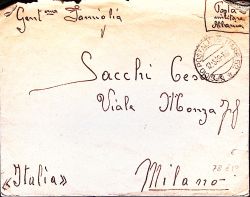 Gent.ma Famiglia
Posta
militare
Albania
Sacchi Cesare
Viale Monza 78
«Italia»
Milano